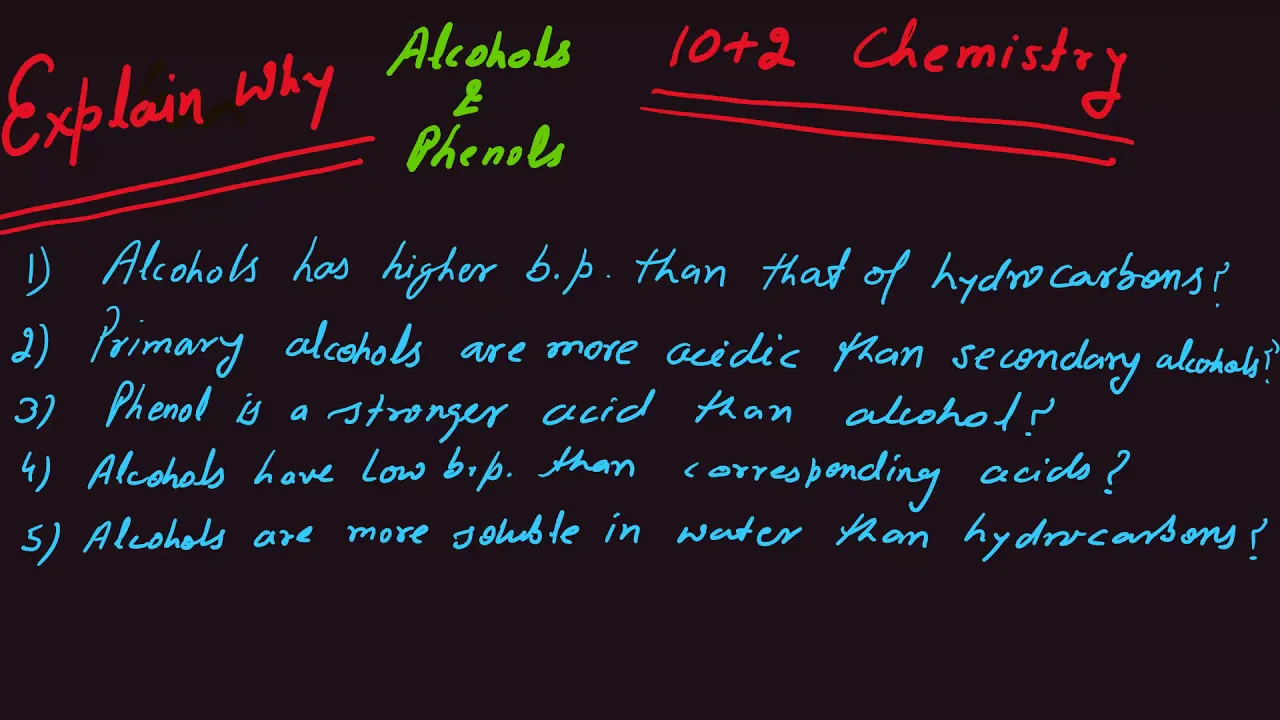 Explain Why
Alcohols
&
Phenols
10+2 Chemistry
1) Alcohols has higher b.p. than that of hydrocarbons?
2) Primary alcohols are more acidic than secondary alcohols?
3) Phenol is a stronger acid than alcohol?
4) Alcohols have low b.p. than corresponding acids?
5) Alcohols are more soluble in water than hydrocarbons?